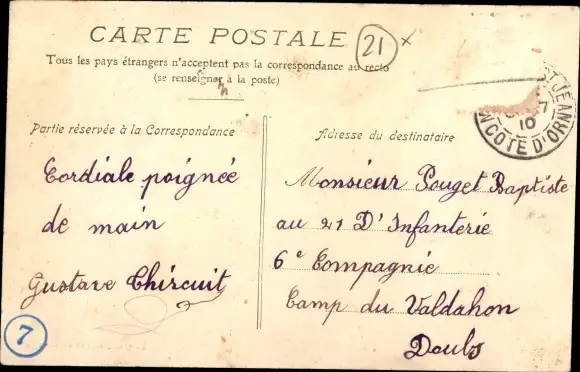 CARTE POSTALE
21 x
Tous les pays étrangers n'acceptent pas la correspondance au recto
(se renseigner à la poste)
Partie réservée à la Correspondance
Cordiale poignée
de main
Gustave Chircuit
7
Adresse du destinataire
Monsieur Pouget Baptiste
au 21 D'Infanterie
6e Compagnie
Camp du Valdahon
Doubs
JEAN
7
10
COTE D'OR